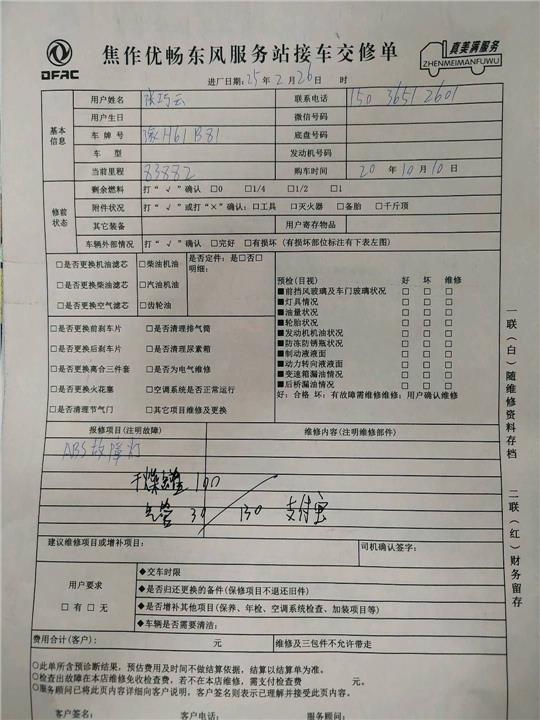 DFAC
焦作优畅东风服务站接车交修单
真美满服务
ZHENMEIMANFUWU
进厂日期:25年2月26日 时
基本信息
用户姓名 张巧云 联系电话 150 3651 2601
用户生日 微信号码
车牌号 豫H61B81 底盘号码
车型 发动机号码
当前里程 83882 购车时间 20年10月10日
修前状态
剩余燃料 打“√”确认 □0 □1/4 □1/2 □1
附件状况 打“√”或打“×”确认:□工具 □灭火器 □备胎 □千斤顶
其它装备 用户寄存物品
车辆外部情况 打“√”确认 □完好 □有损坏(有损坏部位标注有下表左图)
□是否更换机油滤芯 □柴油机油 是否定件:是□否□
明细:
□是否更换柴油滤芯 □汽油机油
□是否更换空气滤芯 □齿轮油
□是否更换前刹车片 □是否清理排气筒
□是否更换后刹车片 □是否清理尿素箱
□是否更换离合三件套 □是否为电气维修
□是否更换火花塞 □空调系统是否正常运行
□是否清理节气门 □其它项目维修及更换
预检(目视) 好 坏 维修
■前挡风玻璃及车门玻璃状况 □ □ □
■灯具情况 □ □ □
■油量状况 □ □ □
■轮胎状况 □ □ □
■发动机机油状况 □ □ □
■防冻防锈瓶状况 □ □ □
■制动液液面 □ □ □
■动力转向液液面 □ □ □
■变速箱漏油情况 □ □ □
■后桥漏油情况 □ □ □
好:合格 坏:有故障需维修维修:用户确认维修
报修项目(注明故障) 维修内容(注明维修部件)
ABS故障灯
干燥罐 100
气管 30 130 支付宝
建议维修项目或增补项目: 司机确认签字:
用户要求
□有 □无
◆交车时限
◆是否归还更换的备件(保修项目不退还旧件)
◆是否增补其他项目(保养、年检、空调系统检查、加装项目等)
◆车辆是否需要清洁:
费用合计(客户): 元 维修及三包件不允许带走
○此单所含预诊断结果,预估费用及时间不做结算依据,结算以结算单为准。
○检查出故障在本店维修免收检查费,若不在本店维修,需支付检查费 元。
○服务顾问已将此页内容详细向客户说明,客户签名则表示已理解并接受此页内容。
客户签名: 客户电话: 服务顾问:
一联(白)随维修资料存档
二联(红)财务留存